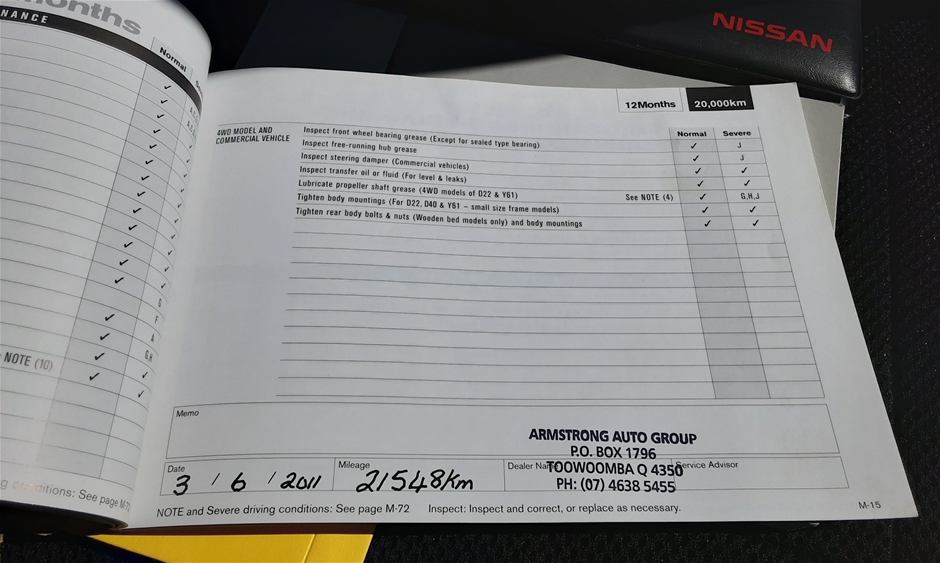 onths
NANCE
Normal
NOTE (10)
g conditions: See page M-7
NISSAN
12Months 20,000km
Normal Severe
4WD MODEL AND
COMMERCIAL VEHICLE
Inspect front wheel bearing grease (Except for sealed type bearing) ✓ J
Inspect free-running hub grease ✓ J
Inspect steering damper (Commercial vehicles) ✓ ✓
Inspect transfer oil or fluid (For level & leaks) ✓ ✓
Lubricate propeller shaft grease (4WD models of D22 & Y61) See NOTE (4) ✓ G,H,J
Tighten body mountings (For D22, D40 & Y61 – small size frame models) ✓ ✓
Tighten rear body bolts & nuts (Wooden bed models only) and body mountings ✓ ✓
Memo
ARMSTRONG AUTO GROUP
P.O. BOX 1796
TOOWOOMBA Q 4350
PH: (07) 4638 5455
Date
3 / 6 / 2011
Mileage
21548km
Dealer Na
Service Advisor
NOTE and Severe driving conditions: See page M-72 Inspect: Inspect and correct, or replace as necessary.
M-15